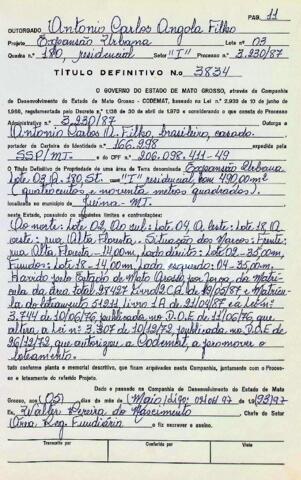 PAG. 11
OUTORGADO Antonio Carlos Angola Filho
Projeto Expansão Urbana Lote n.o 03
Quadra n.o 180, residencial Setor "I" Processo n.o 3.230/87
TÍTULO DEFINITIVO N.o 3834
O GOVERNO DO ESTADO DE MATO GROSSO, através da Companhia
de Desenvolvimento do Estado de Mato Grosso - CODEMAT, baseado na Lei n.o 2.939 de 10 de junho de
1968, regulamentada pelo Decreto n.o 1.138 de 30 de abril de 1970 e considerando o que consta do Processo
Administrativo n.o 3.230/87
Outorga a
Antonio Carlos A. Filho, brasileiro, casado.
portador da Carteira de Identidade n.o 166.298 expedida pela
SSP/MT. e do CPF n.o 206.098.411-49
O Título Definitivo de Propriedade de uma área de Terra denominada Expansão Urbana
Lote 03 Q. 180. St. "I" residencial com 490,00m²
(quatrocentos e noventa metros quadrados).
localizada no município de Juina-MT.
neste Estado, possuindo os seguintes limites e confrontações:
Ao norte: Lote 02, Ao sul: Lote 04, A leste: Lote 18, A
oeste: rua Alta Floresta. Situação dos Marcos: Frente:
rua Alta Floresta - 14,00m, Lado direito: Lote 02-35,00m,
Fundos: Lote 18-14,00m, Lado esquerdo: 04-35,00m.
Havido pelo Estado de Mato Grosso, por força da Matrí-
cula da área total livro
do loteamento 51211, livro 1A de 21/04/87 e Lei nº
3.744 de 10/06/76, publicada no D.O.E de 11/06/76, que
altera a Lei nº 3.307 de 10/12/72, publicada no D.O.E de
26/12/72 que autorizou a Codemat a promover o
loteamento.
tudo conforme planta e memorial descritivo, que ficam arquivados nesta Companhia, juntamente com o Proces-
so e loteamento do referido Projeto.
Dado e passado na Companhia de Desenvolvimento do Estado de Mato
Grosso, aos (05) dias do mês de (Maio) digo: de 19
Eu, Walter Pereira do Nascimento, Chefe do Setor
Reg. Fundiário fiz escrever e assino.
Transcrito por Conferido por Visto